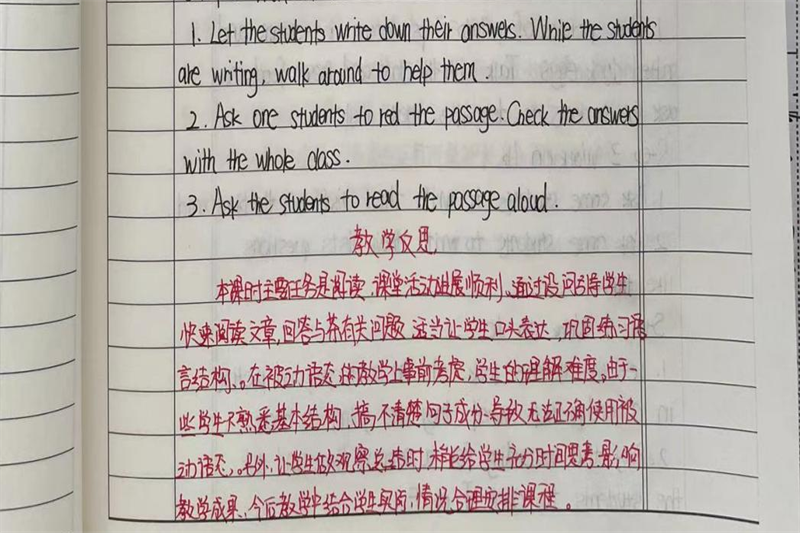 1. Let the students write down their answers. While the students
are writing, walk around to help them.
2. Ask one students to red the passage. Check the answers
with the whole class.
3. Ask the students to read the passage aloud.
教学反思
本课时主要任务是阅读，课堂活动进展顺利。通过设问引导学生
快速阅读文章，回答与有关问题，适当让学生口头表达，巩固练习语
言结构。在被动语态的教学上事前考虑，学生的理解难度。由于一
些学生不熟悉基本结构，搞不清楚句子成分导致无法正确使用被
动语态。另外，让学生做观察总结时，给学生充分时间思考，影响
教学成果，今后教学中结合学生实际，情况，合理安排课程。